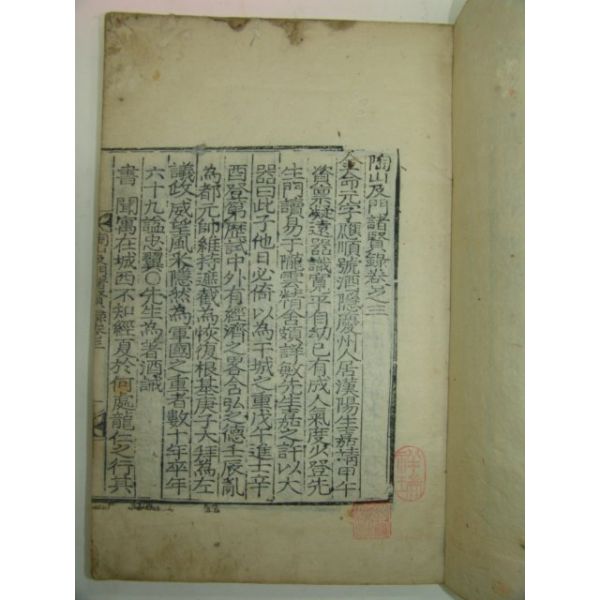 陶山及門諸賢錄卷之三
金命元字應順號酒隱慶州人居漢陽生嘉靖甲午
資稟凝遠器識寬平自幼已有成人氣度少登先
生門讀易于隴雲精舍頗詳敏先生嘉之許以大
器曰此子他日必倚以爲干城之重戊午進士辛
酉登第歷試中外有經濟之畧含弘之德壬辰亂
為都元帥維持遮截為恢復根基庚子大拜為左
議政威望風采隱然為軍國之重者數十年卒年
六十九諡忠翼○先生為著酒誡
書 聞寓在城西不知經夏於何處龍仁之行其